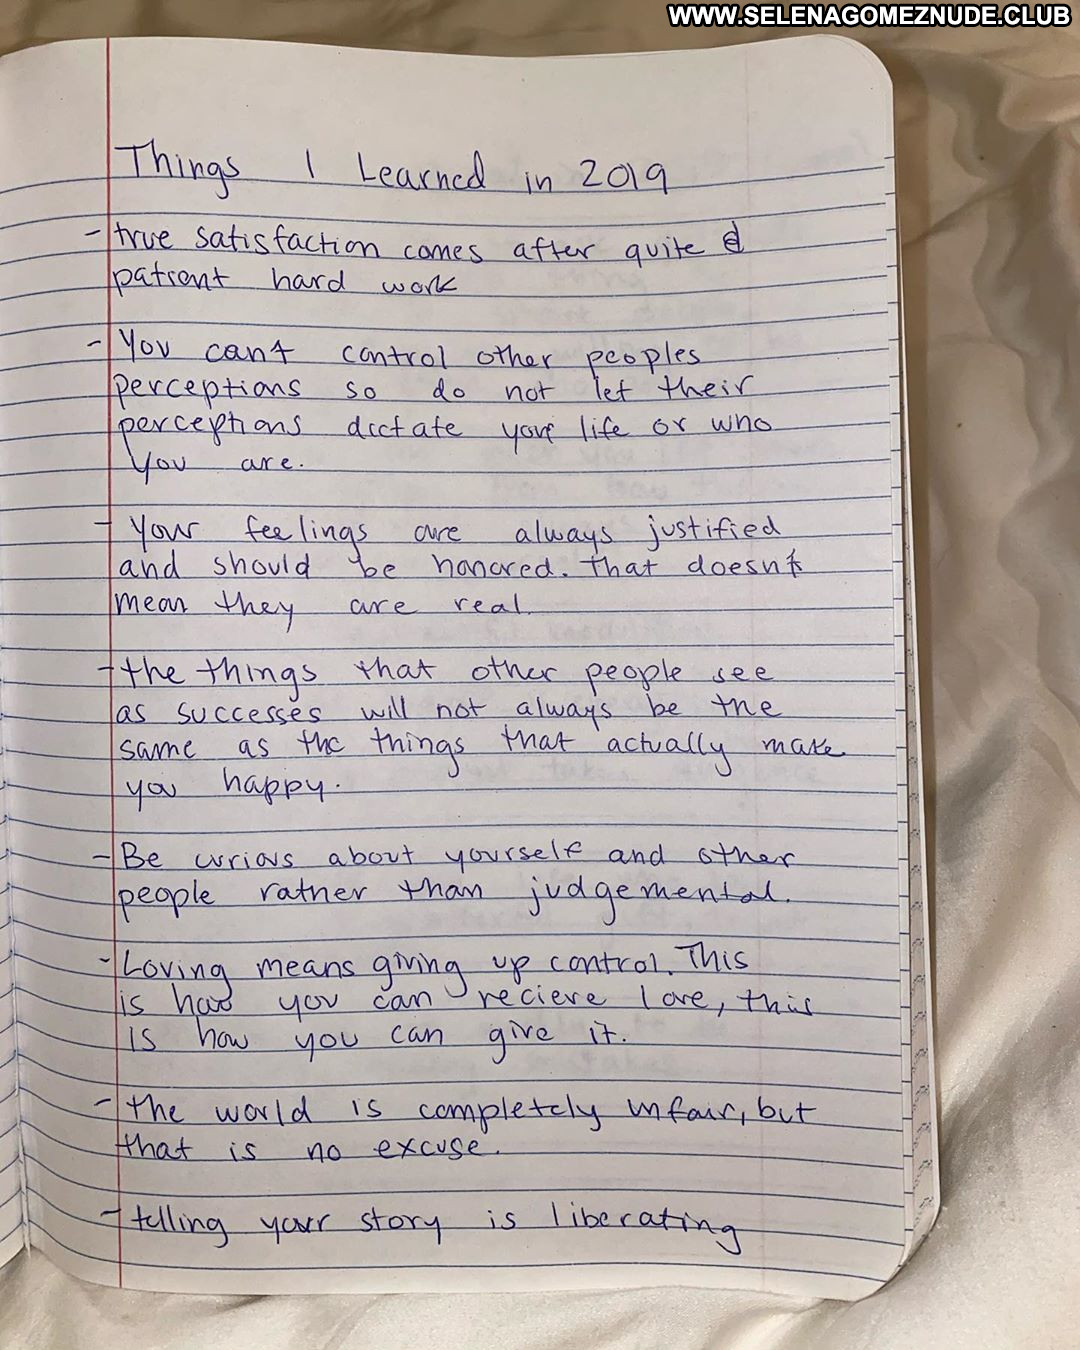 WWW.SELENAGOMEZNUDE.CLUB
Things I Learned in 2019
- true satisfaction comes after quite &
patient hard work
- You can't control other peoples
perceptions so do not let their
perceptions dictate your life or who
you are.
- Your feelings are always justified
and should be honored. that doesnt
mean they are real.
- the things that other people see
as successes will not always be the
same as the things that actually make
you happy.
- Be curious about yourself and other
people rather than judgemental.
- Loving means giving up control. This
is how you can recieve love, this
is how you can give it.
- the world is completely unfair, but
that is no excuse.
- telling your story is liberating